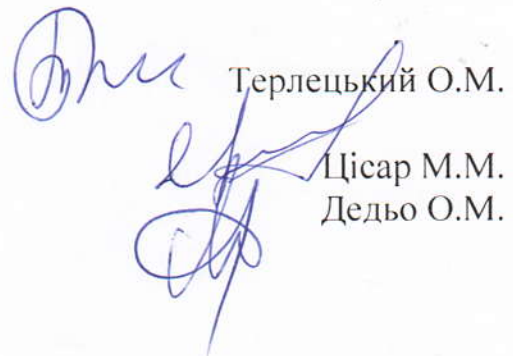 Терлецький О.М.
Цісар М.М.
Дедьо О.М.